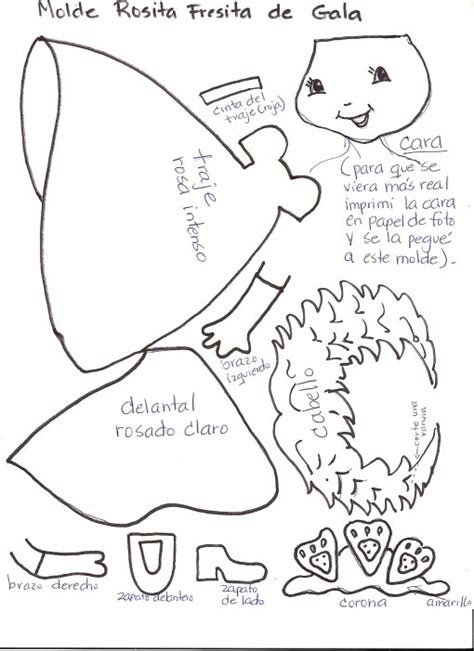 Molde Rosita Fresita de Gala
cinta del
traje (roja)
traje
rosa intenso
cara
(para que se
viera más real
imprimí la cara
en papel de foto
y se la pegué
a este molde).
brazo
izquierdo
cabello
corte una
ranura
delantal
rosado claro
brazo derecho
zapato delantero
zapato
de lado
corona
amarillo